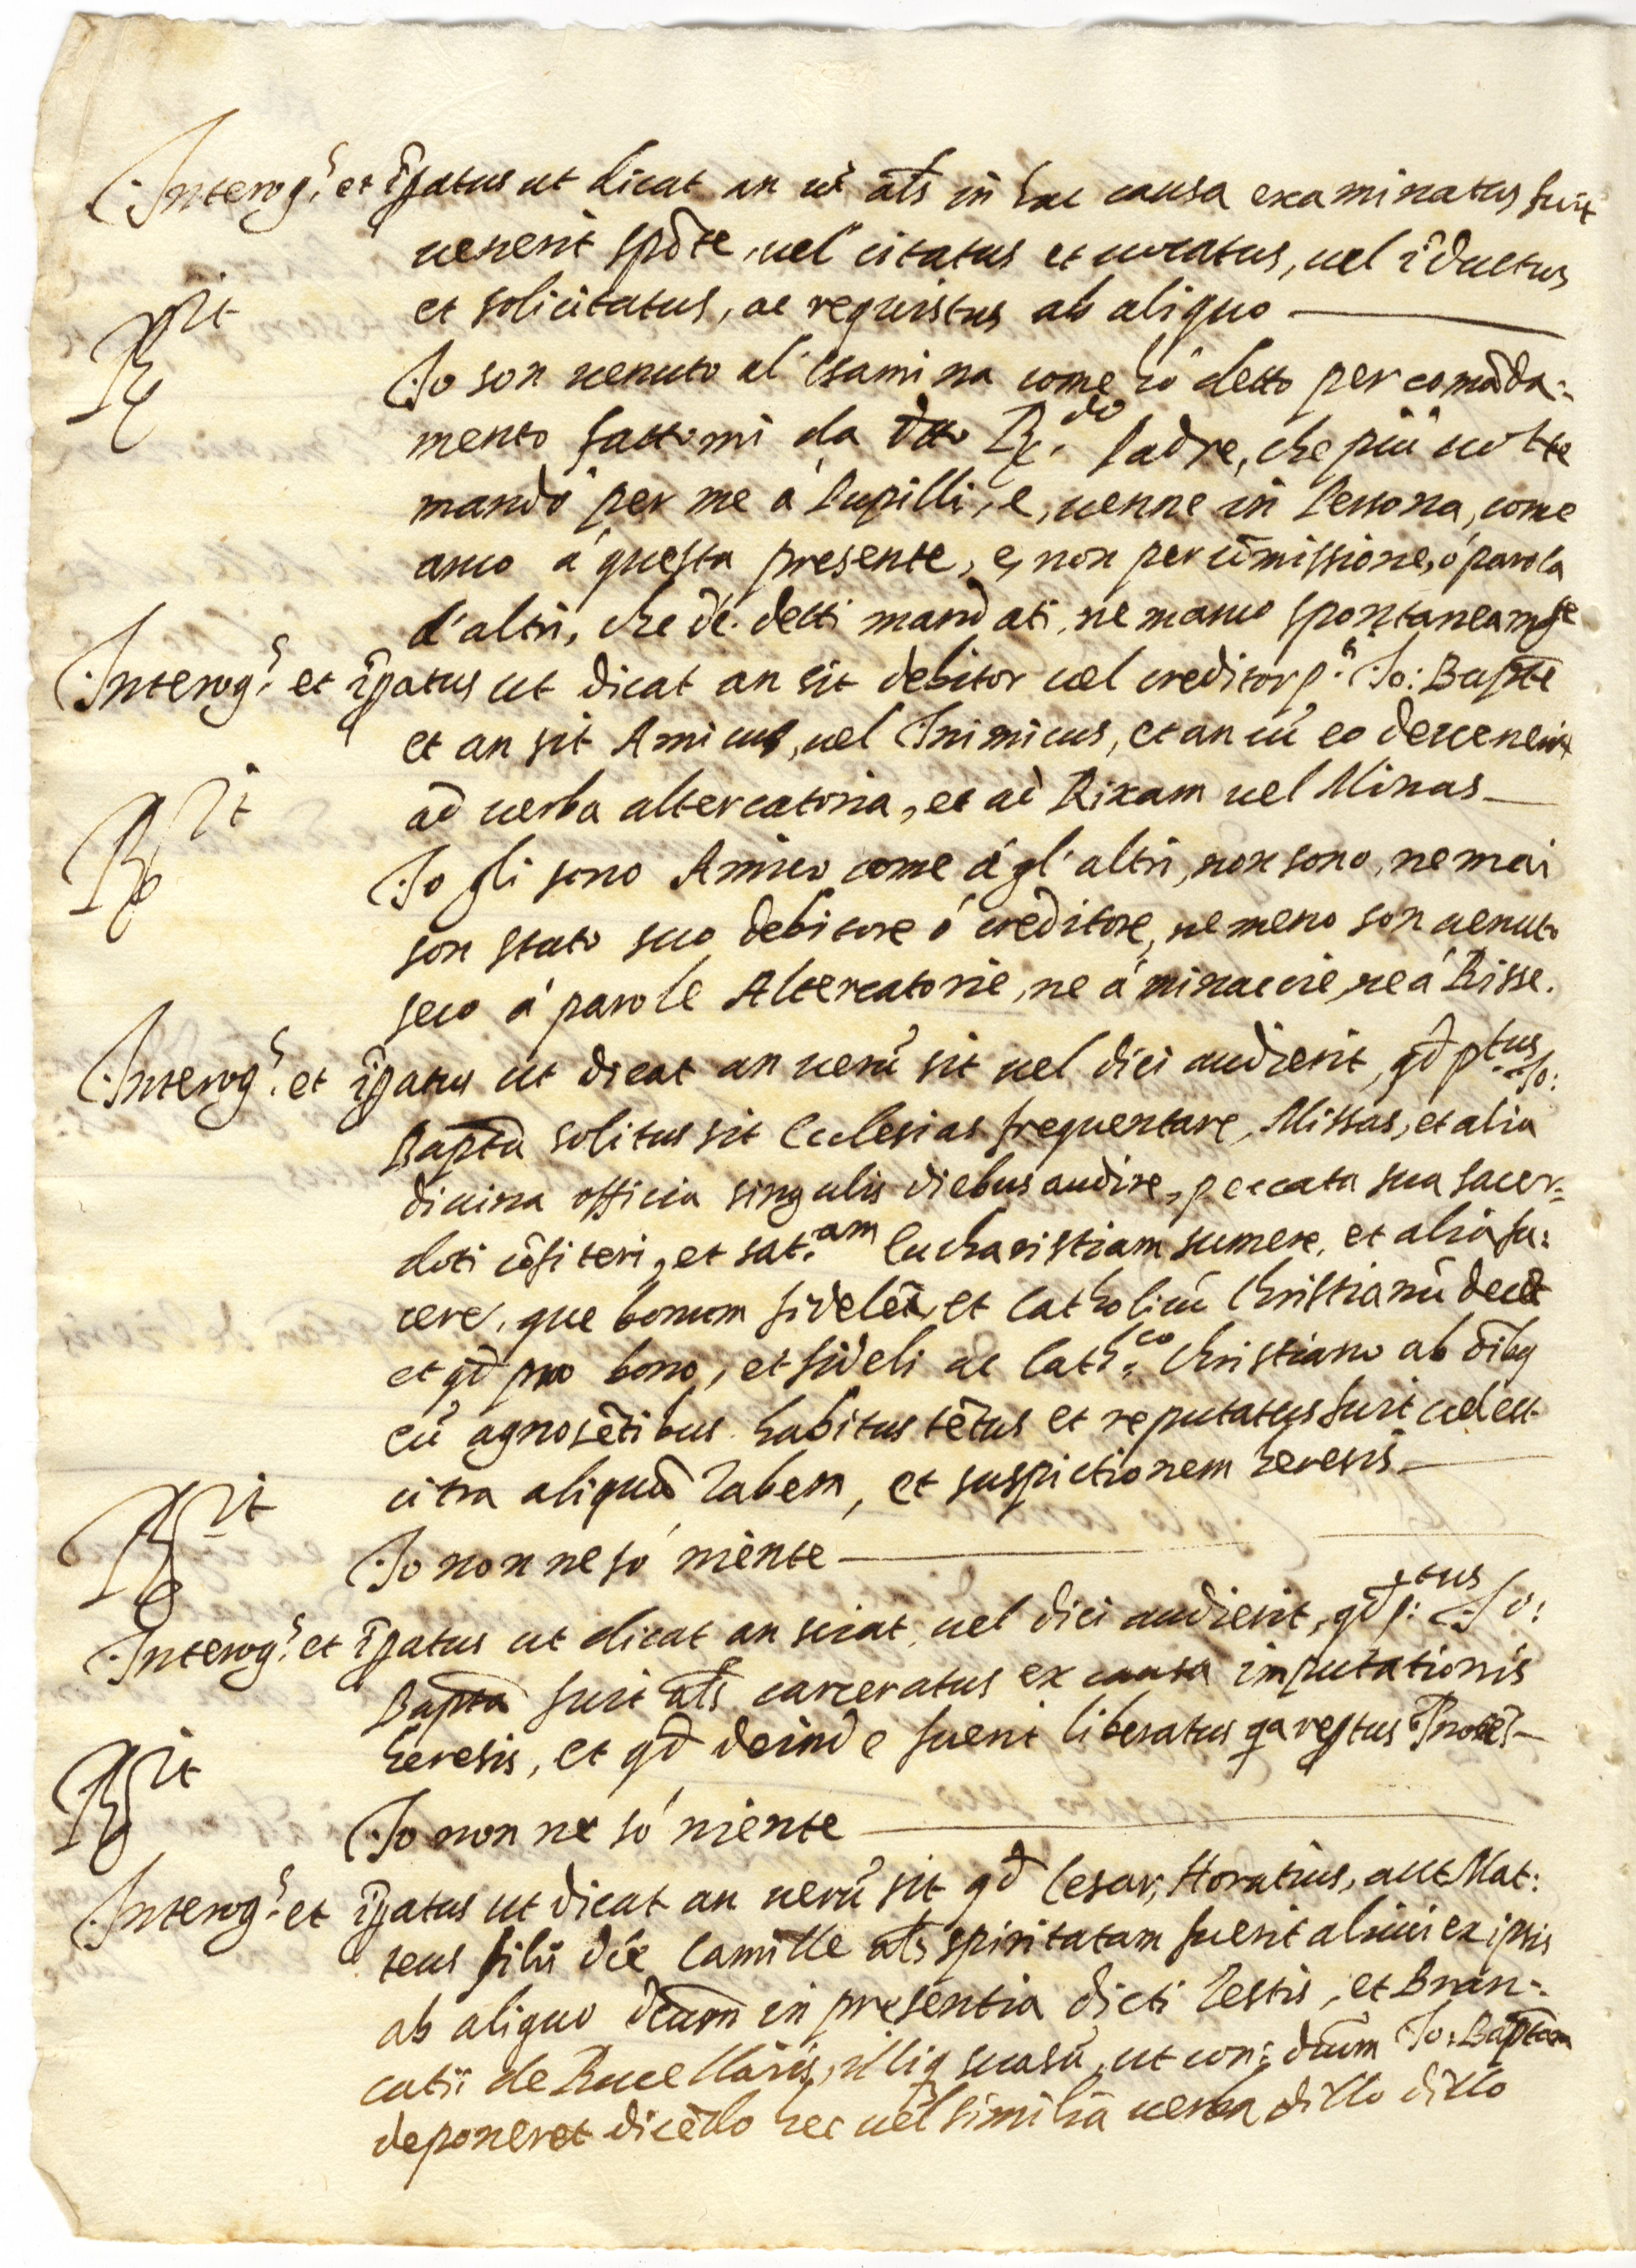 Interog.s et ip̄atus ut dicat an ut al̄s in hac causa examinatus fuit
uenerit spōte, uel citatus et uocatus, uel īductus
et solicitatus, ac requisitus ab aliquo
R.it
Io son uenuto al'esamina come hò detto per comāda:
mento fattomi da dtto R.do Padre, che più uolte
mandò per me à Pupilli, e, uenne in Persona, come
anco à questa presente, e, non per cōmissione, ò parola
d'altri, che dè detti mandati, ne manco spontaneamte
Interog.s et ip̄atus ut dicat an sit debitor uel creditor p.ti Io: Bapt̄e
et an sit Amicus, uel Inimicus, et an cū eo deuenerit
ad uerba altercatoria, et ad Rixam uel Minas
R.it
Io gli sono Amico come à gl'altri, non sono, ne mai
son stato suo debitore ò creditore, ne meno son uenuto
seco à parole Altercatorie, ne à minaccie, ne à Risse.
Interog.s et ip̄atus ut dicat an uerū sit uel dici audierit, qd p.tus Io:
Bapt̄a solitus sit Ecclesias frequentare, Missas, et alia
diuina officia singulis diebus audire, peccata sua sacer:
doti cōfiteri, et sat.am Eucharistiam sumere, et alia fa:
cere, que bonum fidelē et Catholicū Christianū decet
et qd pro bono, et fideli ac Cath.co Christiano ab oībq
eū agnoscētibus habitus tētus et reputatus fuit uel est
citra aliquā labem, et suspictionem heresis
R.it
Io non ne sò niente
Interog.s et ip̄atus ut dicat an sciat, uel dici audierit, qd p.tus Io:
Bapt̄a fuit al̄s carceratus ex causa imputationis
heresis, et qd deinde fuerit liberatus qa reptus Inocēs
R.it
Io non ne sò niente
Interog.s et ip̄atus ut dicat an uerū sit qd Cesar, Horatius, aut Mat:
teus filii dc̄e Camille al̄s spiritatam fuerit alicui ex ipsis
ab aliquo dictum in presentia dicti Testis, et Bran:
catii de Rucellariis, illiq suasū, ut con: dictum Io: Baptam
deponeret dicēdo hec uel similia uerba dillo dillo